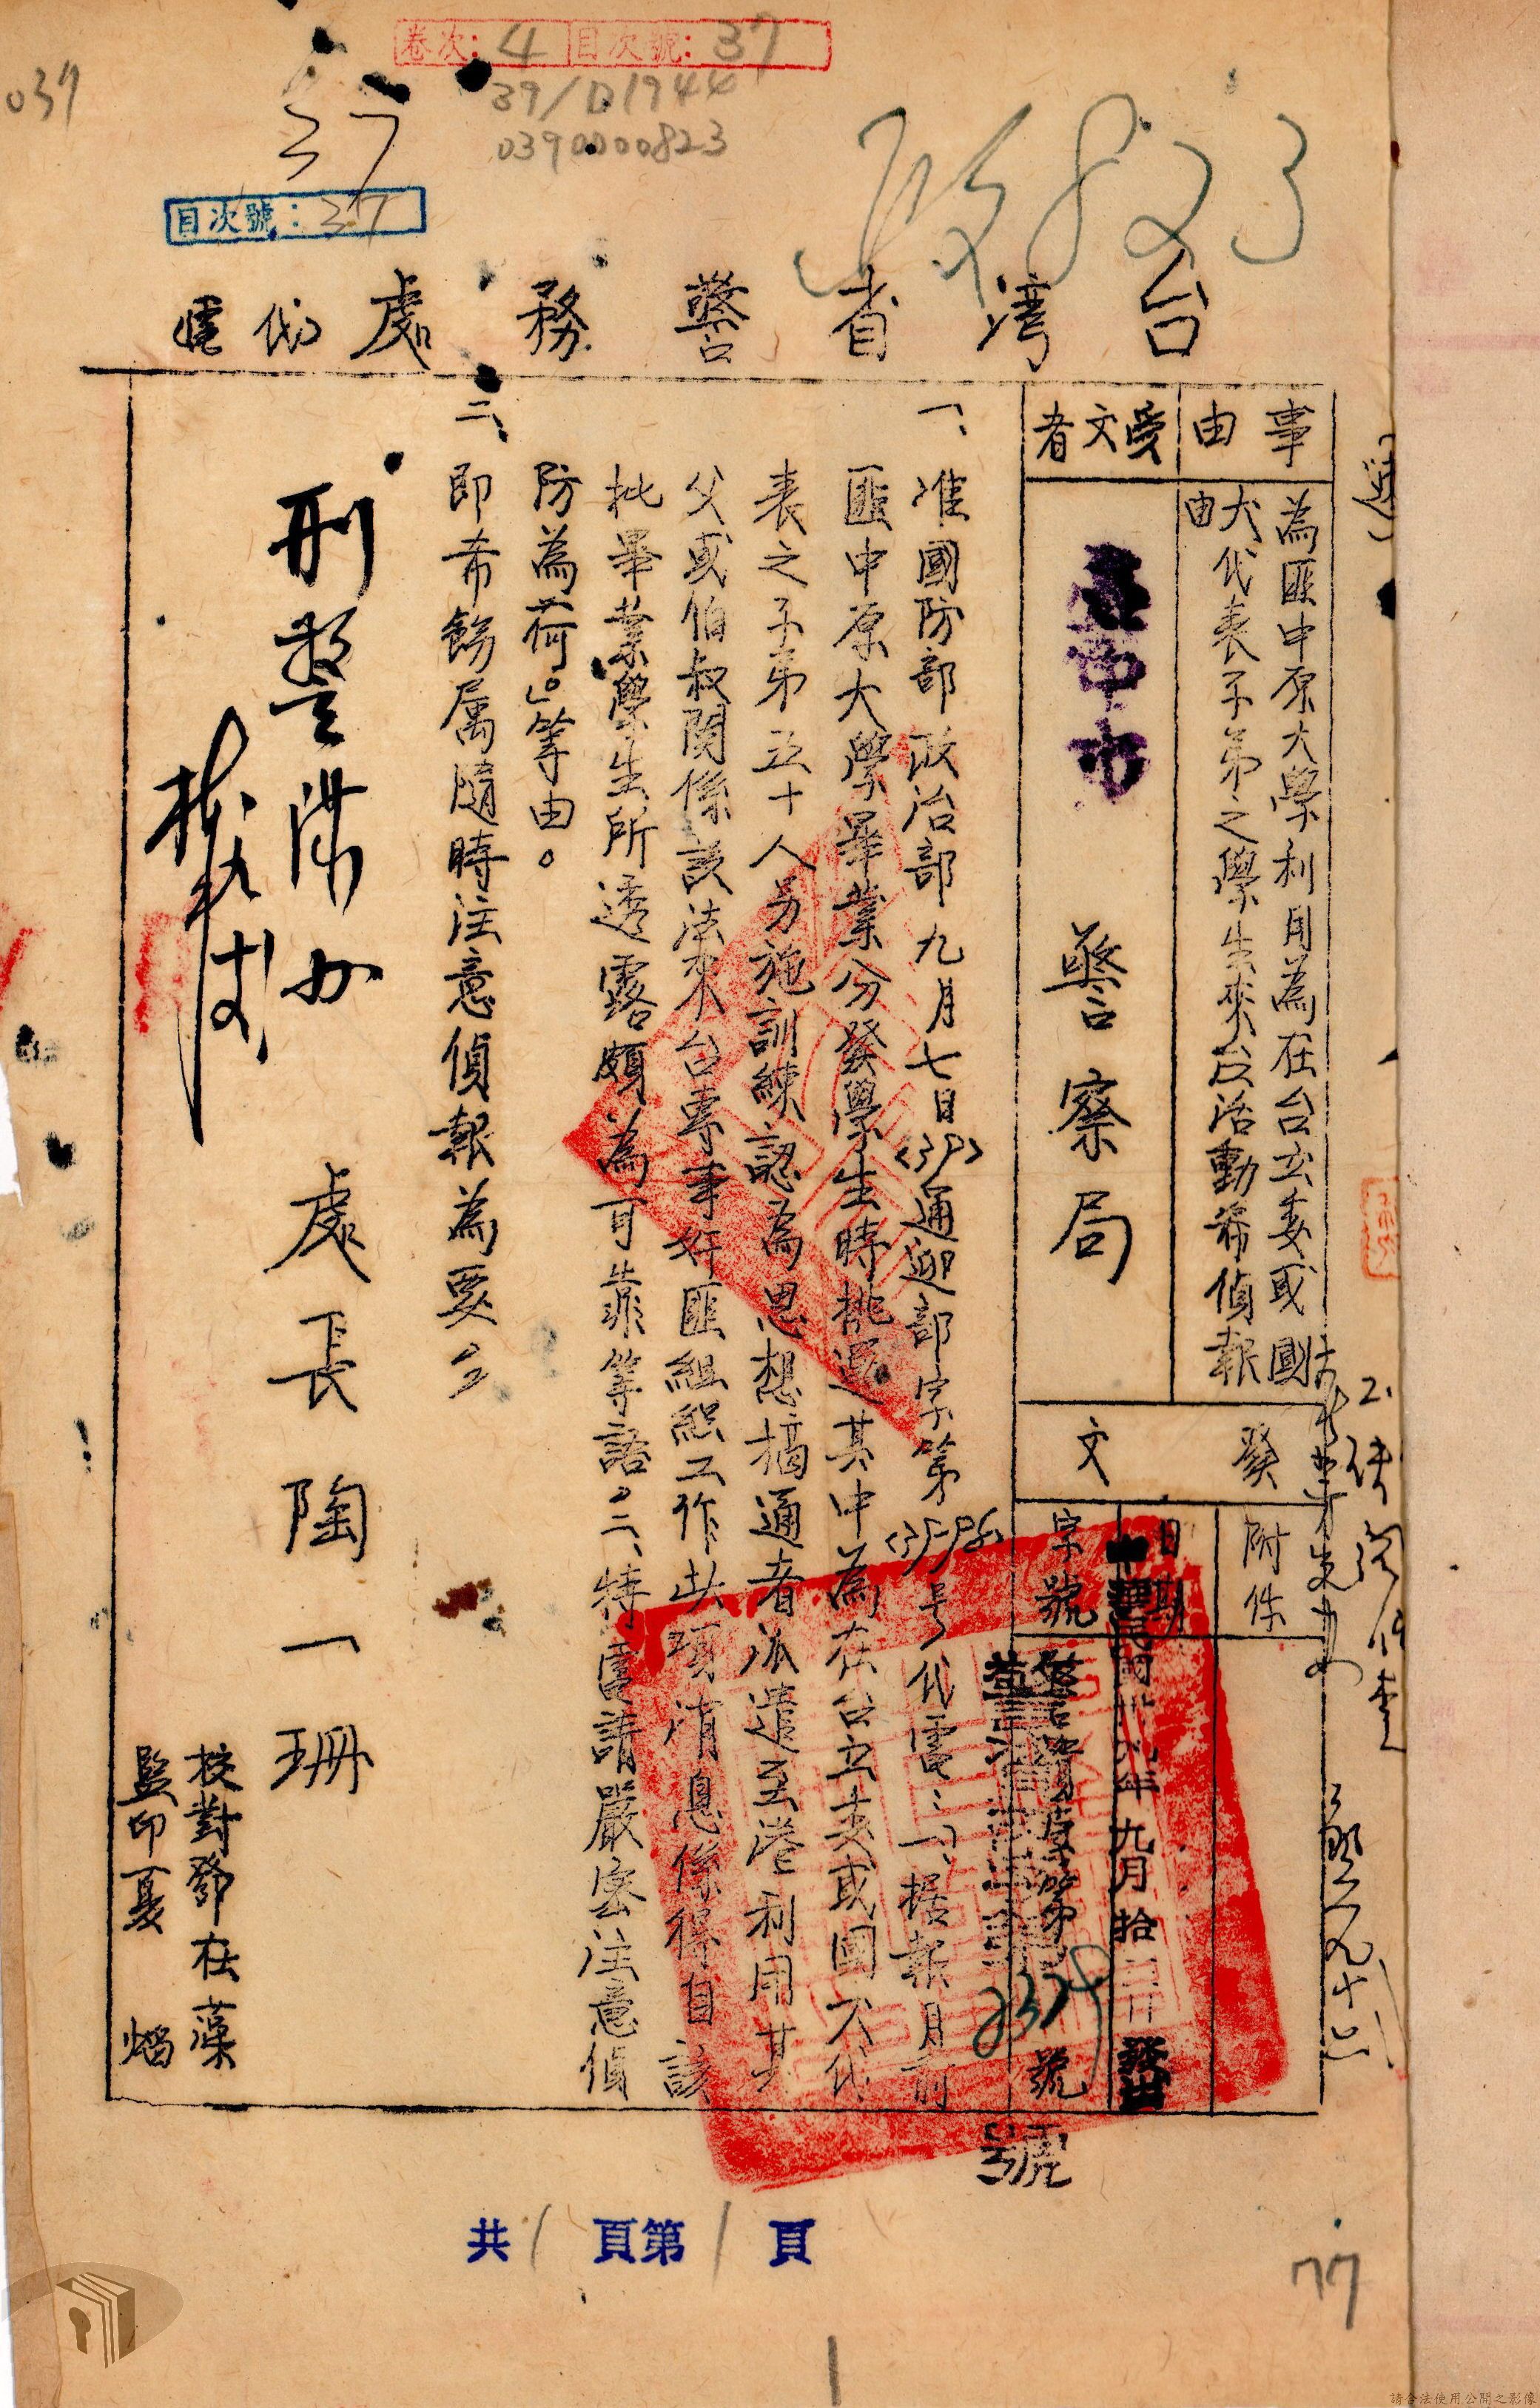 卷次：4 目次號：37
039/
37
39/D1944
0390000823
目次號：37
823
台灣省警務處代電
事由
為匪中原大學利用為在台立委或國
大代表子弟之學生來台活動希偵報
由
受文者
臺中市 警察局
發文
附件
日期
中華民國卅九年九月拾二日發出
字號
號
一、准國防部政治部九月七日(39)通迎部字第號代電：「一、据報月前
匪中原大學畢業分發學生時挑選其中為在台立委或國大代
表之子弟五十人另施訓練認為思想搞通者派遣至港利用其
父或伯叔関係設法來台專事奸匪組織工作此項消息係得自該
批畢業學生所透露頗為可靠等語。二、特電請嚴密注意偵
防為荷。」等由。
二、即希飭屬隨時注意偵報為要
處長陶一珊
刑警隊
校對鄧在藻
監印夏
號
共1頁第1頁
77
請合法使用公開之影像